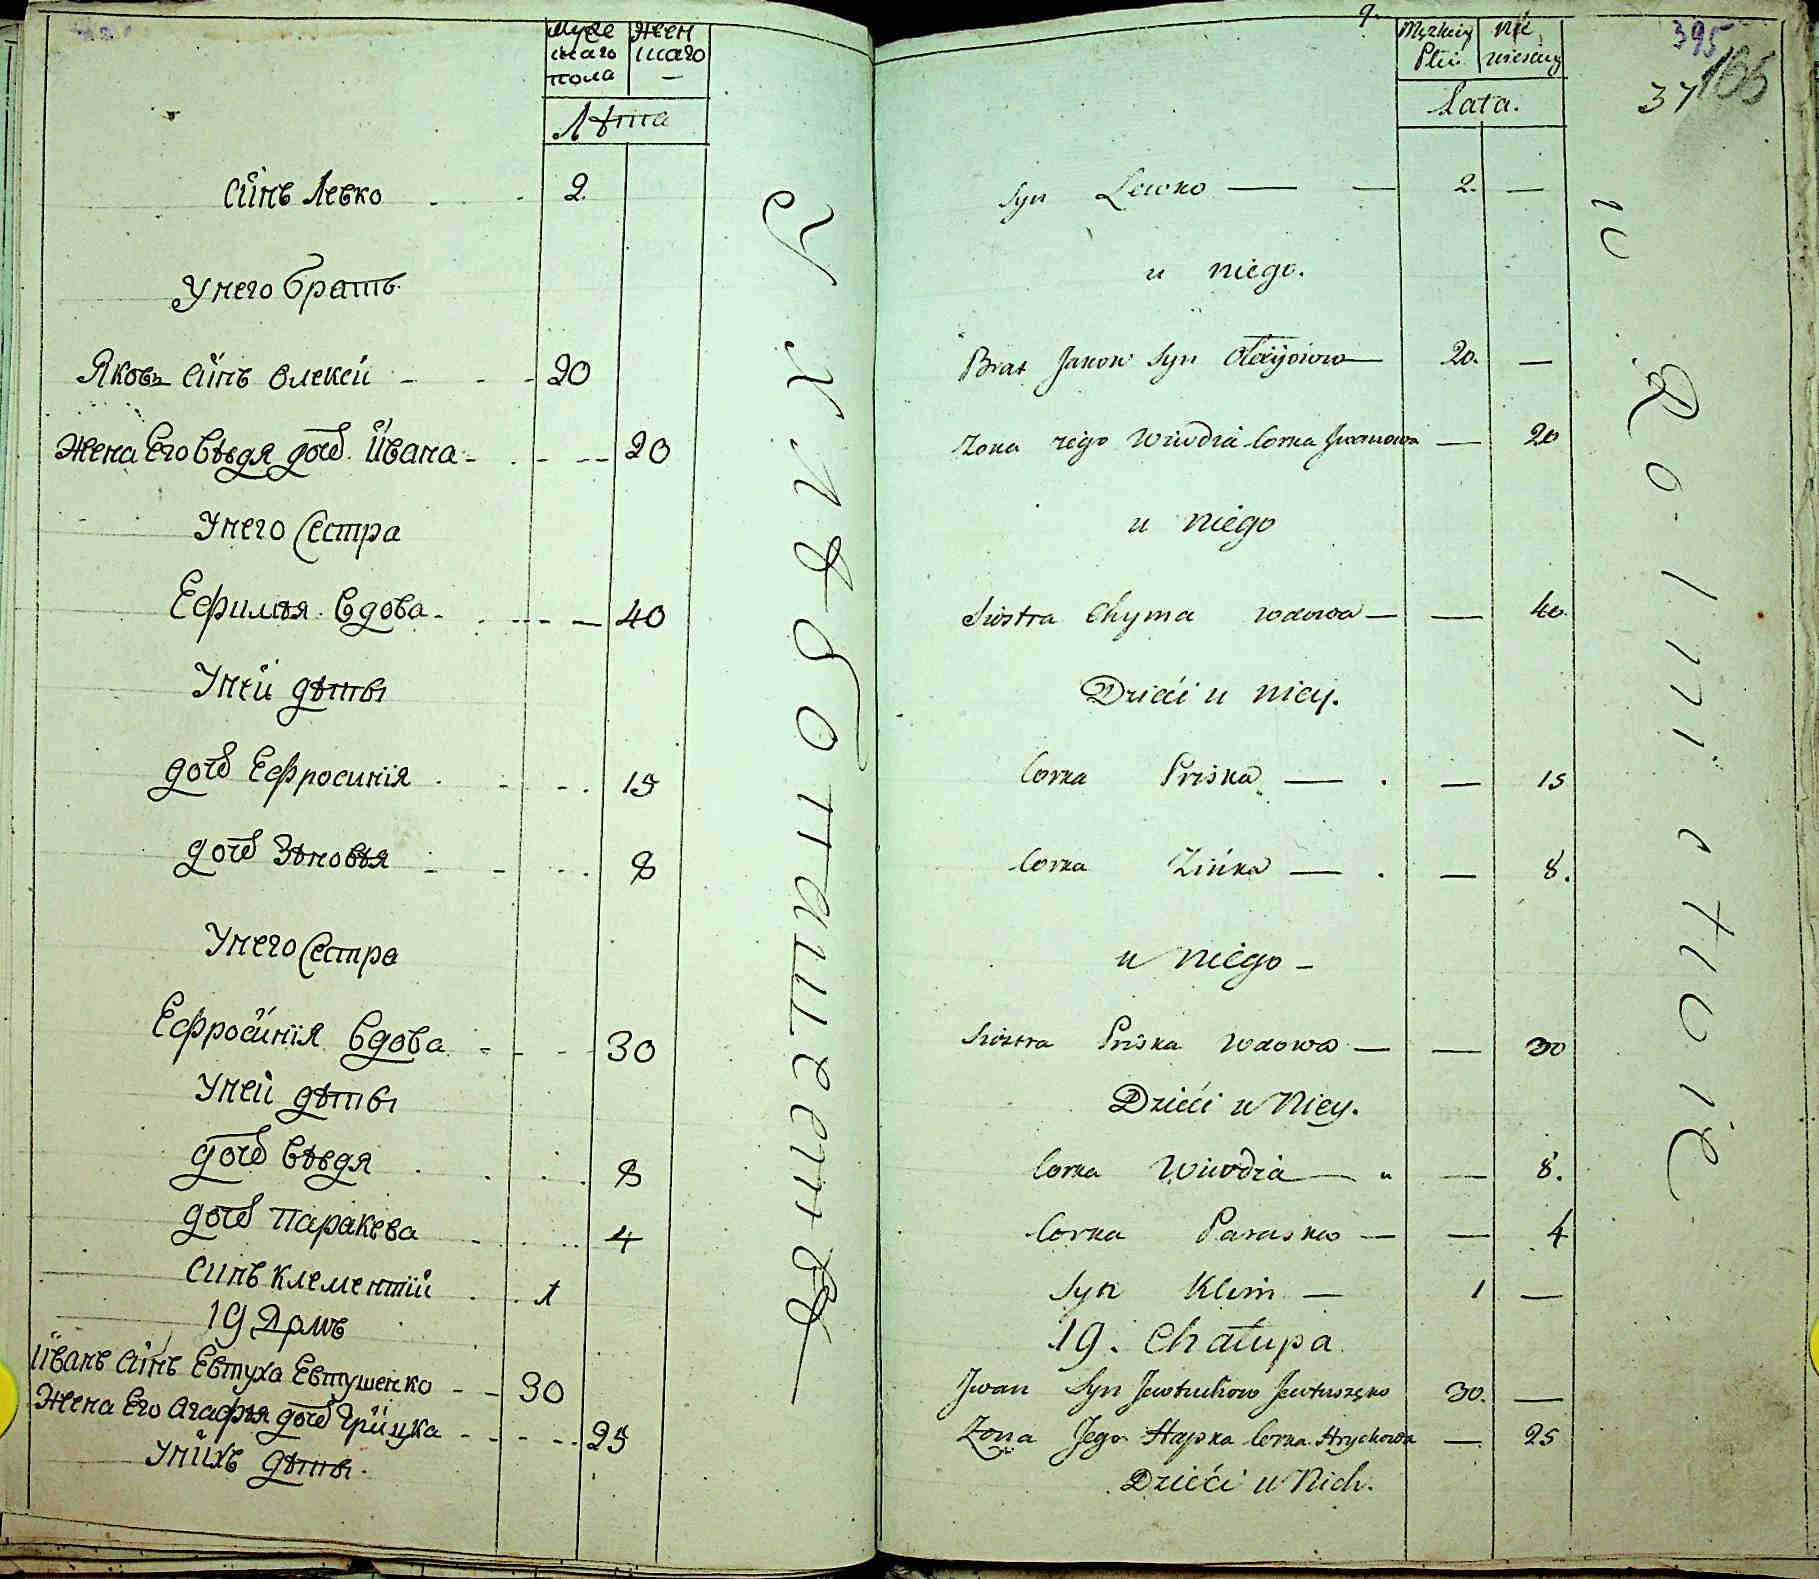 Муже Жен
скаго скаго
пола —
Лѣта
Сйнъ Левко 2
У него братъ
Яковъ Сйнъ Олексѣи 20
Жена Его Вѣвдя дочь Йвана 20
У него Сестра
Ефимѣя Вдова 40
У ней дѣтьы
дочь Ефросинія 15
дочь Зѣновѣя 8
У него Сестра
Ефросйнія Вдова 30
У ней дѣтьы
дочь Вѣвдя 8
дочь Паракева 4
Синъ Клементїй 1
19 Домъ
Йванъ Сйнъ Евтуха Евтушенко 30
Жена Его Агафѣя дочь Грйцка 25
У нйхъ дѣтьы
9.
395
37 165
Męzkiey Nie
Płci wiesciey
Lata.
Syn Lewko — — 2. —
u niego.
Brat Jakow Syn Olexijowow — 20. —
Zona iego Wiwdia Corka Jwanowa — 20
u niego
Siostra Chyma wdowa — — 40.
Dzieci u niey.
Corka Priska — — 15
Corka Zińka — — 8.
u niego —
Siostra Priska Wdowa — — 30
Dzieci u Niey.
Corka Wiwdia — — 8.
Corka Paraska — — 4
Syn Klim — 1 —
19. Chałupa
Jwan Syn Jewtuchow Jewtuszęko 30. —
Zona Jego Hapka Corka Hryckowa — 25
Dzieci u Nich.